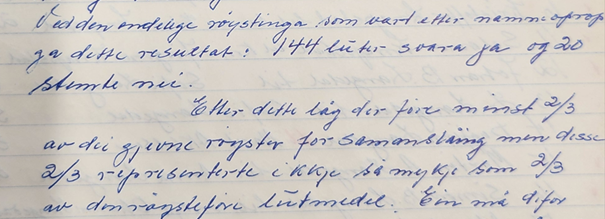 Ved den endelige røystinga som vart etter namneoprop
ga dette resultat: 144 luter svara ja og 20
stemte nei.
Etter dette låg der føre minst 2/3
av dei gjevne røyster for samanslåing men desse
2/3 representerte ikkje så mykje som 2/3
av den røysteføre lutmedel. Ein må difor